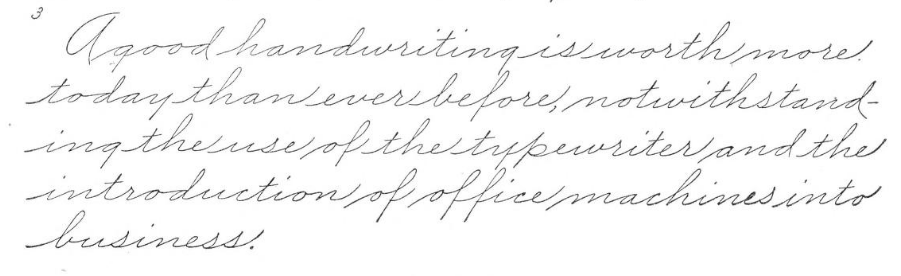 3
A good handwriting is worth more
today than ever before, notwithstand-
ing the use of the typewriter and the
introduction of office machines into
business.